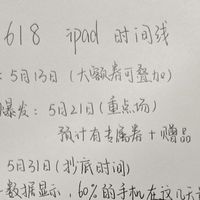 618 ipad 时间线
: 5月13日 (大额券可叠加)
爆发: 5月21日 (重点场)
预计有专属券 + 赠品
5月31日 (抄底时间)
数据显示, 60%的手机在这几天